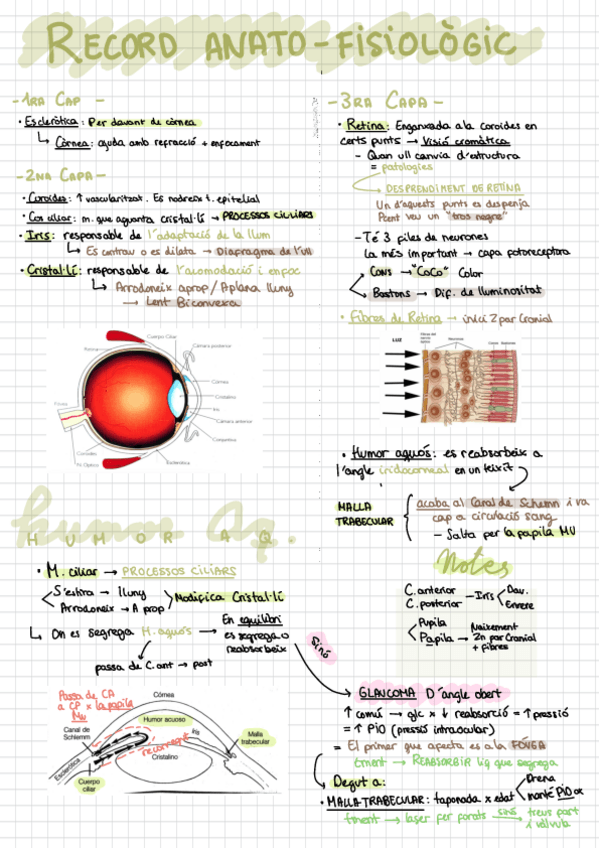 RECORD ANATO-FISIOLÒGIC
-1RA CAP -
• Escleròtica: Per davant de còrnea
↳ Còrnea: ajuda amb refracció + enfocament
-2NA CAPA-
• Coroides: ↑ vascularitzat. Es nodreix t. epitelial
• Cos ciliar: m. que aguanta cristal·lí → PROCESSOS CILIARS
• Iris: responsable de l'adaptació de la llum
↳ Es contrau o es dilata → Diafragma de l'ull
• Cristal·lí: responsable de l'acomodació i enfoc
↳ Arrodoneix aprop / Aplana lluny
→ Lent Biconvexa
Cuerpo Ciliar
Retina
Cámara posterior
Córnea
Cristalino
Iris
Cámara anterior
Conjuntiva
Fóvea
Coroides
N. Optico
Esclerótica
humor Aq.
HUMOR AQ.
• M. ciliar → PROCESSOS CILIARS
S'estira → lluny
Arrodoneix → A prop
Modifica Cristal·lí
↳ On es segrega H. aquós → En equilibri
es segrega o
reabsorbeix
passa de C. ant → post
sinó
Passa de CA
a CP x la papila
MU
Córnea
Humor acuoso
Canal de
Schlemm
Iris
Malla
trabecular
Cristalino
Esclerótica
Cuerpo
ciliar
-3RA CAPA-
• Retina: Enganxada a la coroides en
certs punts → Visió cromàtica
- Quan ull canvia d'estructura
= patologies
DESPRENDIMENT DE RETINA
Un d'aquests punts es despenja
Pacient veu un "tros negre"
- Té 3 piles de neurones
La més important → capa fotoreceptora
Cons → "CoCo" Color
Bastons → Dif. de lluminositat
• Fibres de Retina → inici 2 par Cranial
LUZ
Neuronas
Conos
Bastones
• Humor aquós: es reabsorbeix a
l'angle iridocorneal en un teixit
MALLA
TRABECULAR
acaba al Canal de Schlemn i va
cap a circulació sang
- Salta per la papila MU
Notes
C. anterior
C. posterior
- Iris
Dav.
Enrere
Pupila
Papila → Naixement
2n par Cranial
+ fibres
GLAUCOMA D'angle obert
↑ comú → glc x ↓ reabsorció = ↑ pressió
= ↑ PIO (pressió intraocular)
= El primer que afecta es a la FÒVEA
tment → REABSORBIR líq que segrega
Degut a:
• MALLA TRABECULAR: taponada x edat
Drena
manté PIO ok
tment → laser fer forats sinó → treus part
i vàlvula